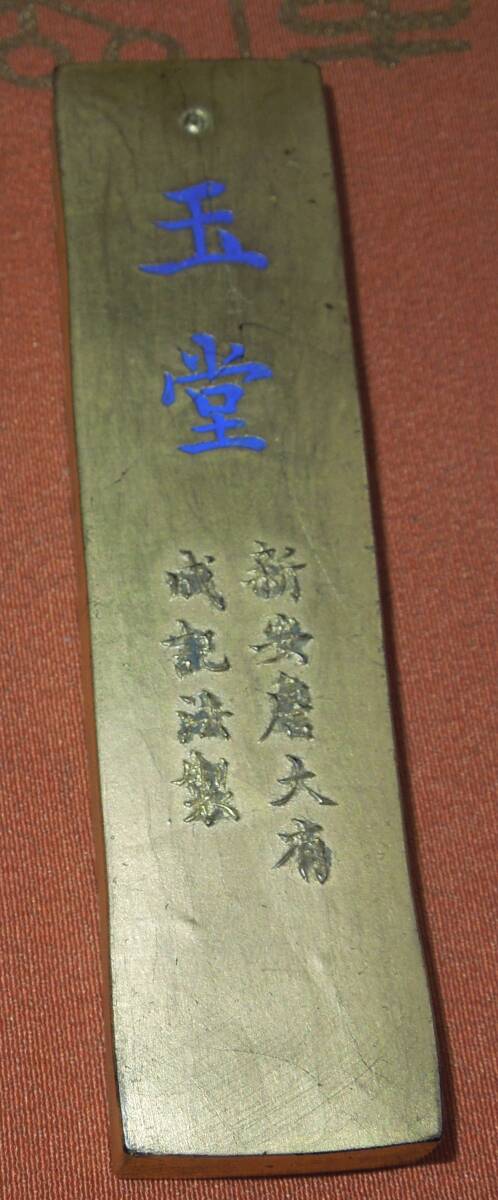 玉堂
新安詹大有
成記法製